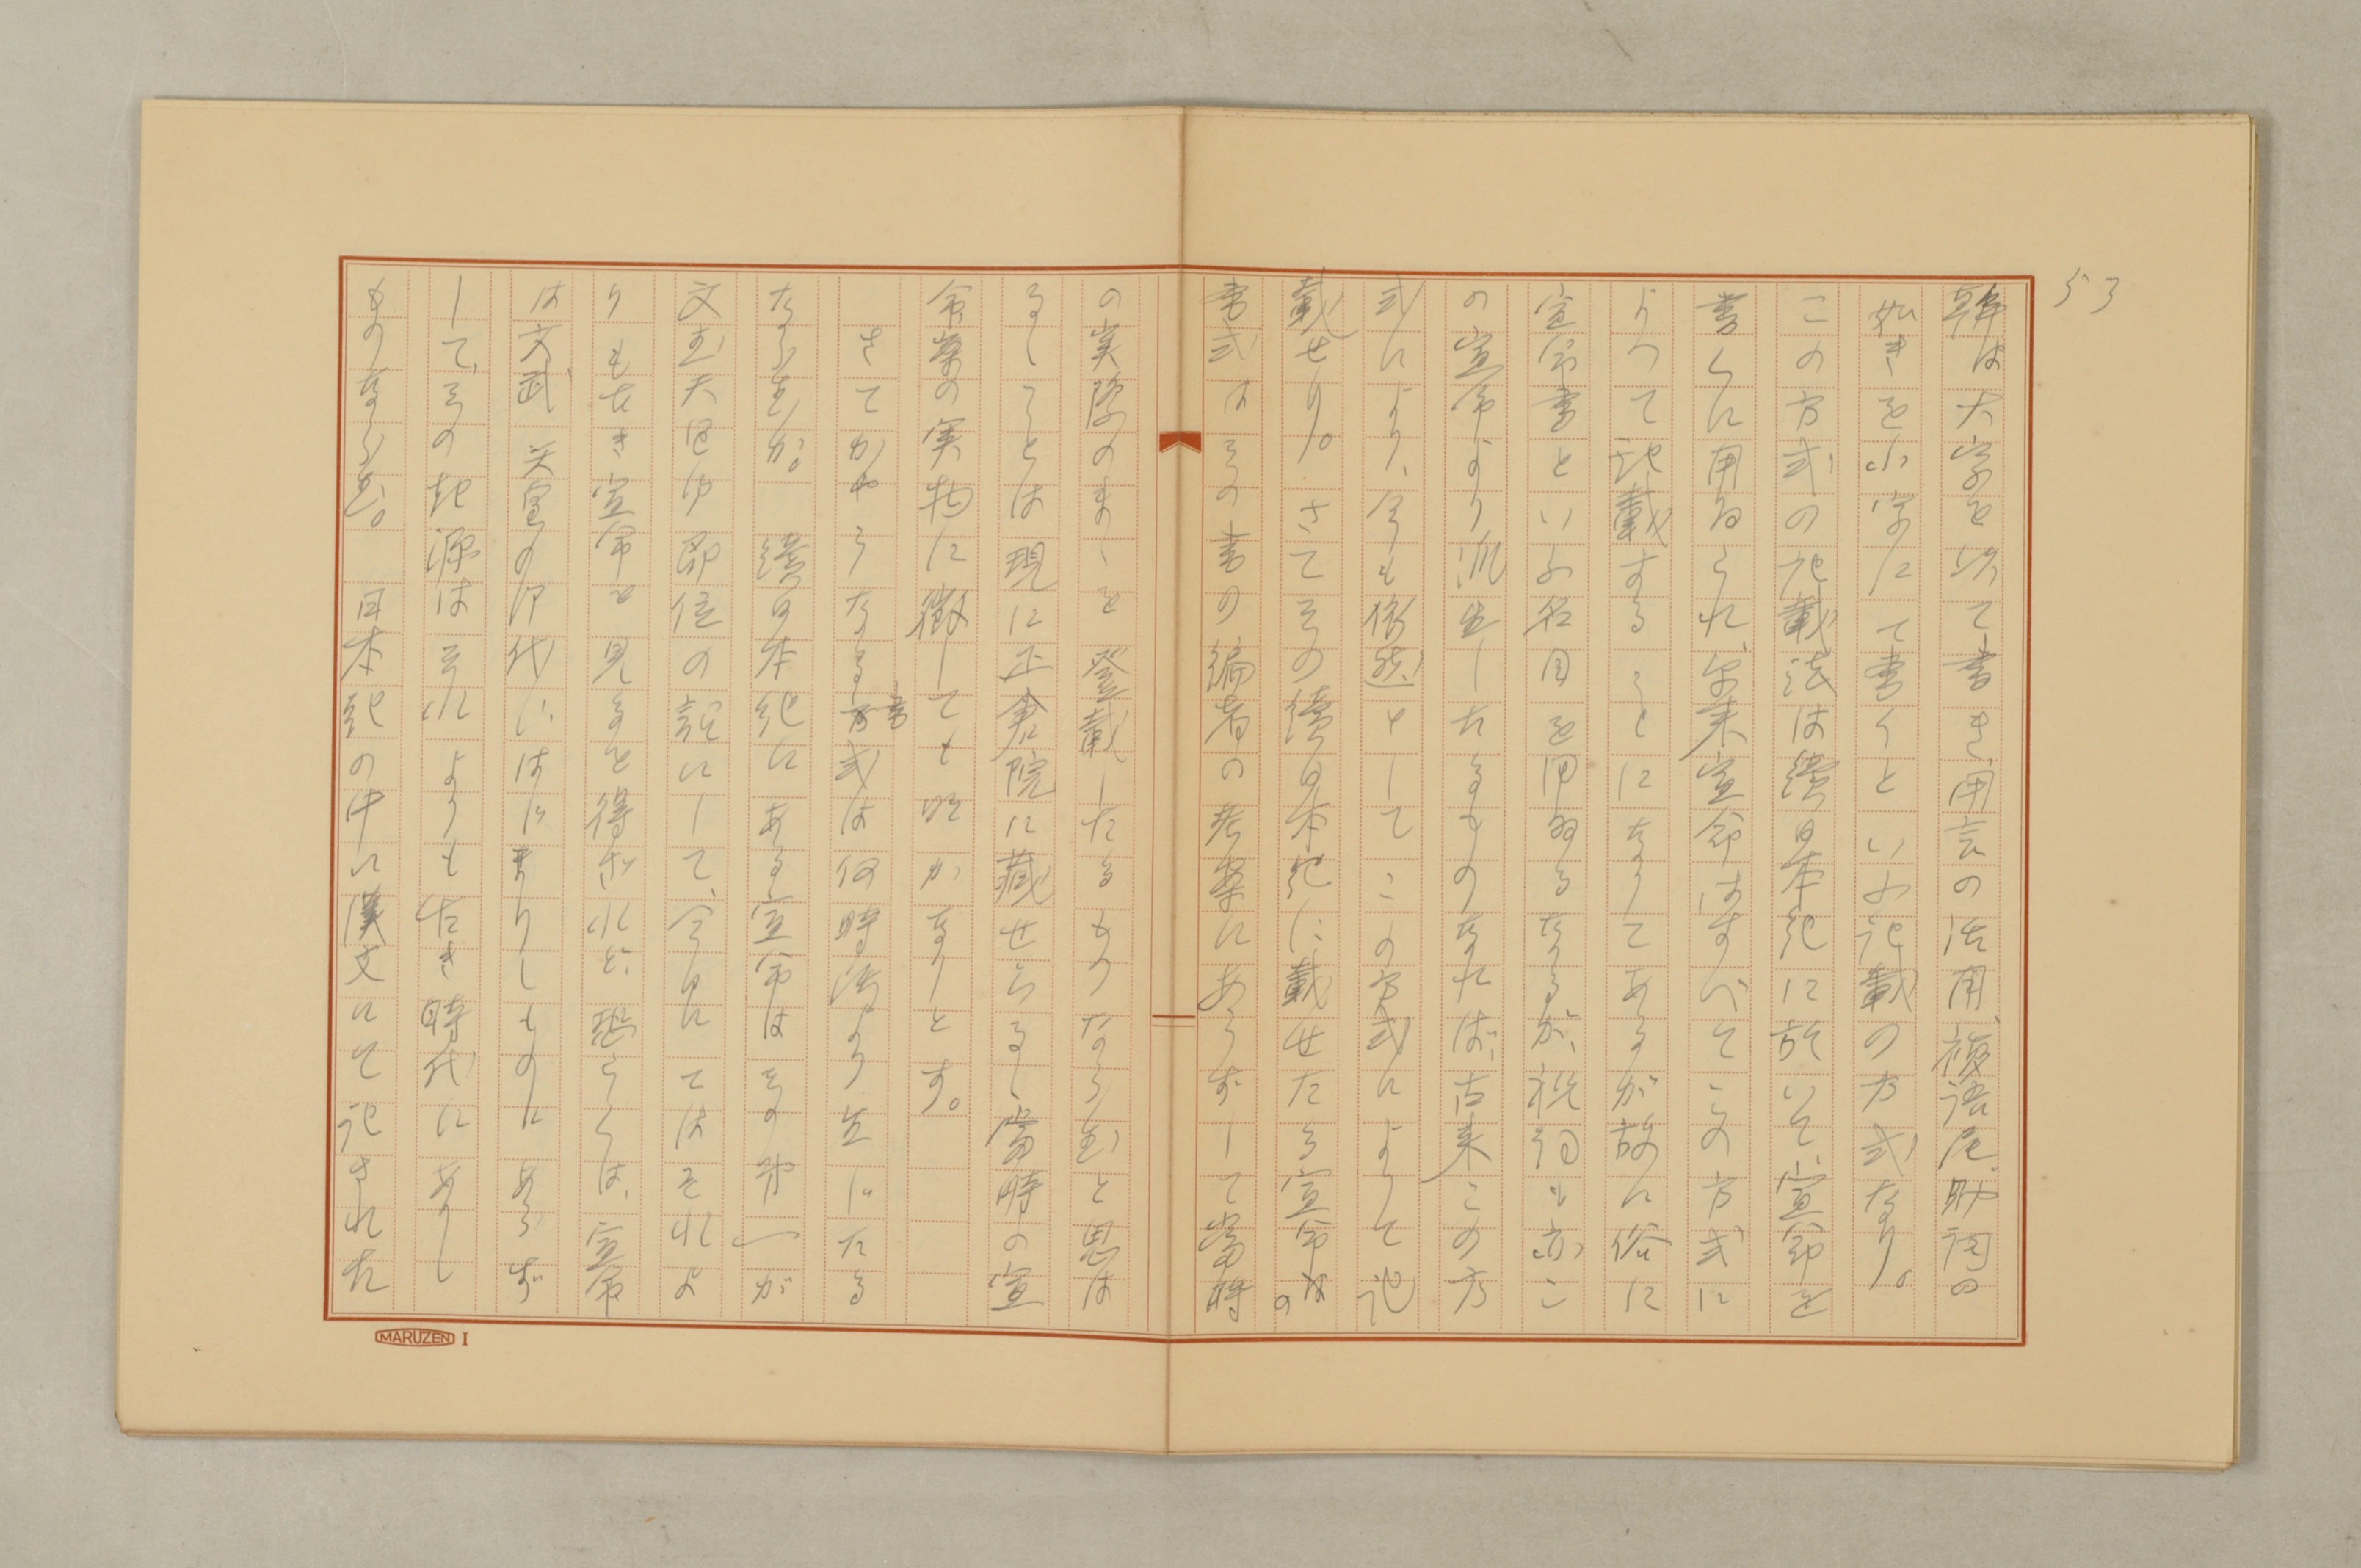 53
幹は大字を以て書き、用言の活用、複語尾、助詞の
如きを小字にて書くといふ記載の方式なり。
この方式の記載法は續日本紀に於いて、宣命を
書くに用ゐられ、爾来宣命はすべてこの方式に
よつて記載することになりてあるが故に俗に
宣命書といふ名目を用ゐるなるが、祝詞も亦こ
の宣命より派生したるものなれば、古来この方
式により、今も依然としてこの方式によりて記
載せり。さてその續日本紀に載せたる宣命の
書式はその書の編者の考案にあらずして當時
の実際のまゝを登載したるものならむと思は
るゝことは現に正倉院に藏せらるゝ當時の宣
命案の実物に徴しても明かなりとす。
さてかやうなる書式は何時頃より生じたる
ならむか。續日本紀にある宣命はその第一が
文武天皇御即位の詔にして、今日にてはそれよ
りも古き宣命を見るを得ざれど、恐らくは、宣命
は文武天皇の御代にはじまりしものにあらず
して、その起源はそれよりも古き時代にありし
ものならむ。日本紀の中に漢文にて記された
MARUZEN I